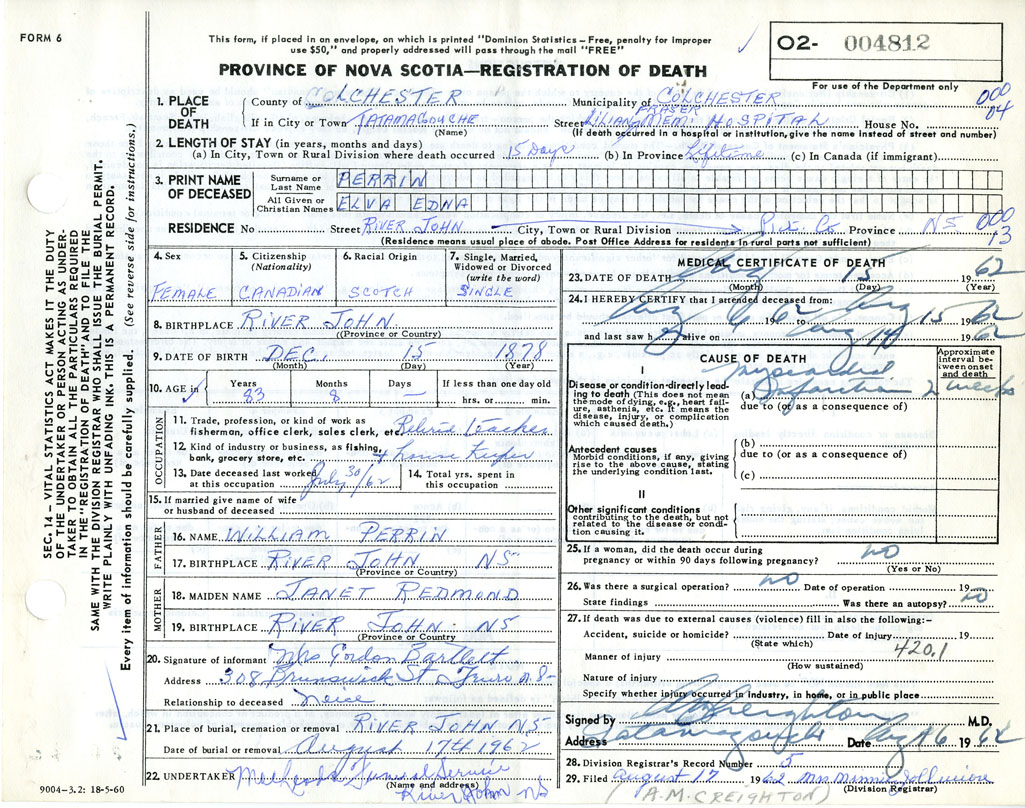 FORM 6
This form, if placed in an envelope, on which is printed "Dominion Statistics – Free, penalty for improper
use $50," and properly addressed will pass through the mail "FREE"
O2- 004812
For use of the Department only
PROVINCE OF NOVA SCOTIA—REGISTRATION OF DEATH
SEC. 14 – VITAL STATISTICS ACT MAKES IT THE DUTY
OF THE UNDERTAKER OR PERSON ACTING AS UNDER-
TAKER TO OBTAIN ALL THE PARTICULARS REQUIRED
IN THE "REGISTRATION OF DEATH" AND TO FILE THE
SAME WITH THE DIVISION REGISTRAR WHO SHALL ISSUE THE BURIAL PERMIT.
WRITE PLAINLY WITH UNFADING INK. THIS IS A PERMANENT RECORD.
Every item of information should be carefully supplied. (See reverse side for instructions.)
1. PLACE OF DEATH
County of COLCHESTER Municipality of COLCHESTER 000
84
If in City or Town TATAMAGOUCHE Street LILIAN FRASER MEM. HOSPITAL House No.
(Name) (If death occurred in a hospital or institution, give the name instead of street and number)
2. LENGTH OF STAY (in years, months and days)
(a) In City, Town or Rural Division where death occurred 15 Days (b) In Province Lifetime (c) In Canada (if immigrant)
3. PRINT NAME OF DECEASED
Surname or Last Name PERRIN
All Given or Christian Names ELVA EDNA
RESIDENCE No Street RIVER JOHN City, Town or Rural Division Pic. Co Province NS 000
13
(Residence means usual place of abode. Post Office Address for residents in rural parts not sufficient)
4. Sex
FEMALE
5. Citizenship
(Nationality)
CANADIAN
6. Racial Origin
SCOTCH
7. Single, Married,
Widowed or Divorced
(write the word)
SINGLE
8. BIRTHPLACE RIVER JOHN
(Province or Country)
9. DATE OF BIRTH DEC. 15 1878
(Month) (Day) (Year)
10. AGE in
Years Months Days If less than one day old
83 8 — hrs. or min.
OCCUPATION
11. Trade, profession, or kind of work as
fisherman, office clerk, sales clerk, etc. Retired Teacher
12. Kind of industry or business, as fishing,
bank, grocery store, etc. + House Keeper
13. Date deceased last worked
at this occupation July 30/62
14. Total yrs. spent in
this occupation
15. If married give name of wife
or husband of deceased
FATHER
16. NAME WILLIAM PERRIN
17. BIRTHPLACE RIVER JOHN NS
(Province or Country)
MOTHER
18. MAIDEN NAME JANET REDMOND
19. BIRTHPLACE RIVER JOHN. NS
(Province or Country)
20. Signature of informant Mrs Gordon Bartlett
Address 308 Brunswick St Truro N.S-
Relationship to deceased Neice
21. Place of burial, cremation or removal RIVER JOHN NS
Date of burial or removal August 17th 1962
22. UNDERTAKER Funeral Service
(Name and address)
River John NS
9004-3.2: 18-5-60
MEDICAL CERTIFICATE OF DEATH
23. DATE OF DEATH Aug 15 1962
(Month) (Day) (Year)
24. I HEREBY CERTIFY that I attended deceased from:
Aug 6 1962 to Aug 15 1962
and last saw h alive on Aug 14 62
CAUSE OF DEATH
Approximate
interval be-
tween onset
and death
I
Disease or condition directly lead-
ing to death (This does not mean
the mode of dying, e.g., heart fail-
ure, asthenia, etc. It means the
disease, injury, or complication
which caused death.)
(a) Myocardial Infarction 2 weeks
due to (or as a consequence of)
Antecedent causes
Morbid conditions, if any, giving
rise to the above cause, stating
the underlying condition last.
(b)
due to (or as a consequence of)
(c)
II
Other significant conditions
contributing to the death, but not
related to the disease or condi-
tion causing it.
25. If a woman, did the death occur during
pregnancy or within 90 days following pregnancy? no
(Yes or No)
26. Was there a surgical operation? no Date of operation 19
State findings Was there an autopsy? no
27. If death was due to external causes (violence) fill in also the following:-
Accident, suicide or homicide? Date of injury 19
(State which)
420.1
Manner of injury
(How sustained)
Nature of injury
Specify whether injury occurred in industry, in home, or in public place
Signed by AM Creighton M.D.
Address Tatamagouche Date Aug 16 1962
28. Division Registrar's Record Number 5
29. Filed August 17 1962 Mrs Minnie
(Division Registrar)
(A.M. CREIGHTON)